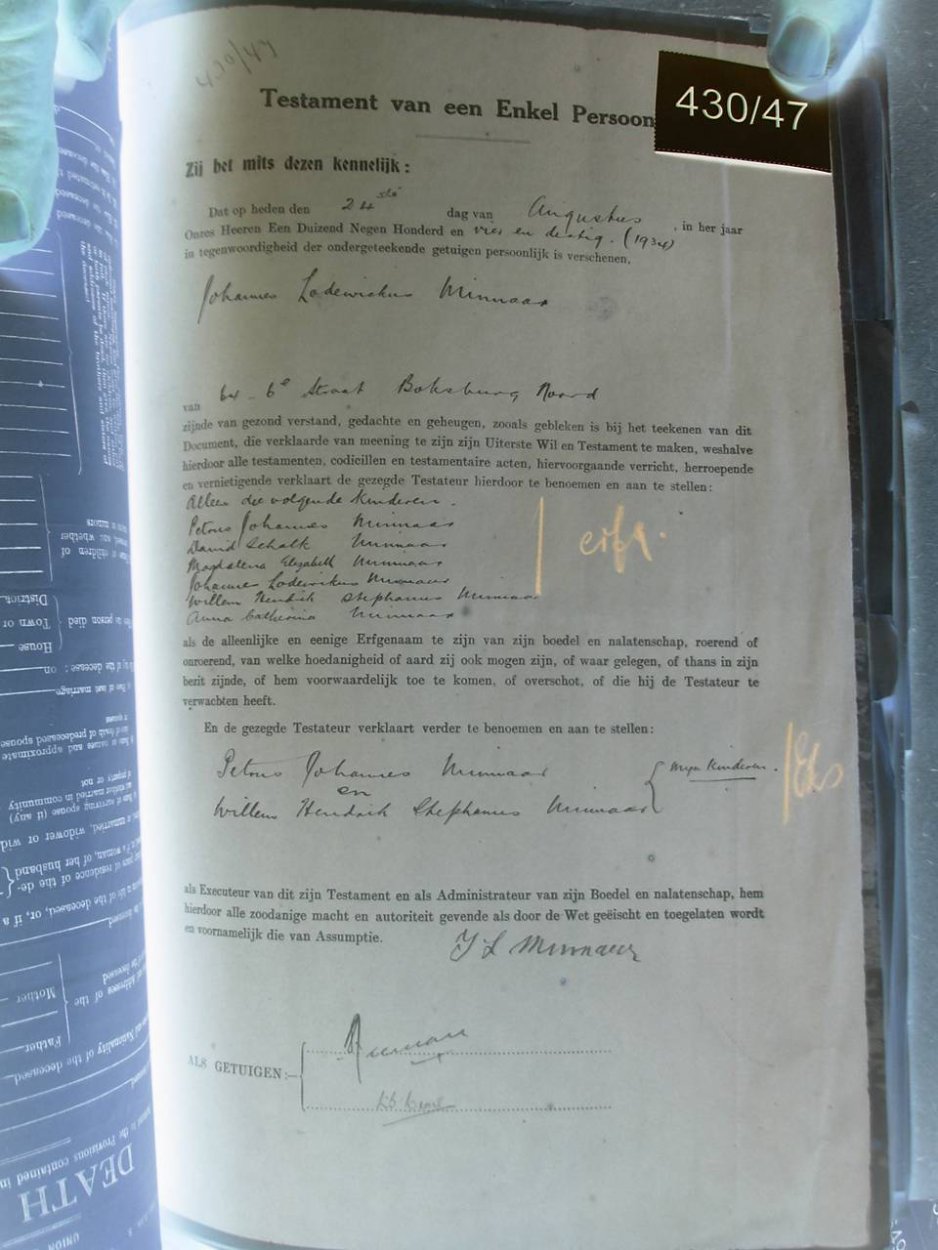 430/47
Testament van een Enkel Persoon
430/47
Zij het mits dezen kennelijk :
Dat op heden den 24ste dag van Augustus , in her jaar
Onzes Heeren Een Duizend Negen Honderd en vier en dertig. (1934)
in tegenwoordigheid der ondergeteekende getuigen persoonlijk is verschenen,
Johannes Lodewickus Minnaar
van 64 - 6e Straat Boksburg Noord
zijnde van gezond verstand, gedachte en geheugen, zooals gebleken is bij het teekenen van dit
Document, die verklaarde van meening te zijn zijn Uiterste Wil en Testament te maken, weshalve
hierdoor alle testamenten, codicillen en testamentaire acten, hiervoorgaande verricht, herroepende
en vernietigende verklaart de gezegde Testateur hierdoor te benoemen en aan te stellen :
Alleen die volgende Kinderen.
Petrus Johannes Minnaar
David Schalk Minnaar
Magdalena Elizabeth Minnaar
Johannes Lodewikus Minnaar
Willem Hendrik Stephanus Minnaar
Anna Catherina Minnaar
erfr.
als de alleenlijke en eenige Erfgenaam te zijn van zijn boedel en nalatenschap, roerend of
onroerend, van welke hoedanigheid of aard zij ook mogen zijn, of waar gelegen, of thans in zijn
bezit zijnde, of hem voorwaardelijk toe te komen, of overschot, of die hij de Testateur te
verwachten heeft.
En de gezegde Testateur verklaart verder te benoemen en aan te stellen :
Petrus Johannes Minnaar
en
Willem Hendrik Stephanus Minnaar
Mijn Kinderen.
Exs
als Executeur van dit zijn Testament en als Administrateur van zijn Boedel en nalatenschap, hem
hierdoor alle zoodanige macht en autoriteit gevende als door de Wet geëischt en toegelaten wordt
en voornamelijk die van Assumptie.
J L Minnaar
ALS GETUIGEN :—
DEATH
UNION
to the Provisions contained in
Nationality of the deceased
Father
Mother
House
Town or
District